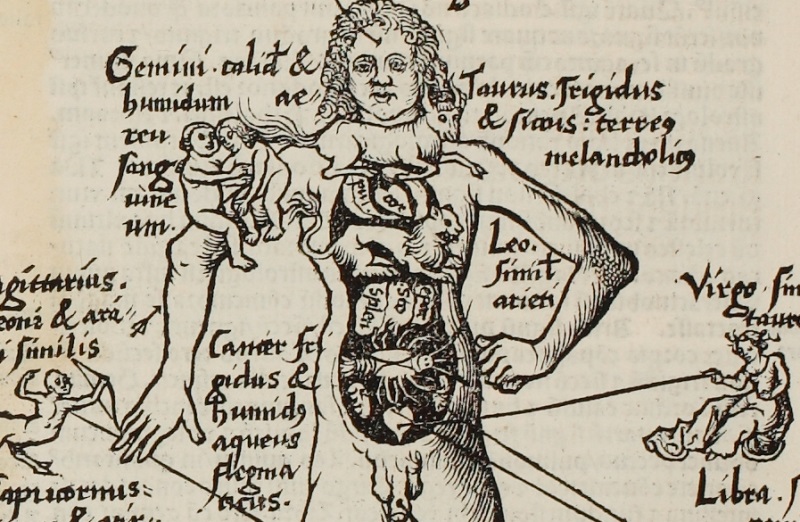 Gemini calid &
humidum ae
reu
sang
uine
um.
Taurus. Frigidus
& siccus: terreꝰ
melancholicꝰ
Leo.
simil
arieti
gittarius.
leoni & ara
i similis
Cancer fri
gidus &
humidꝰ
aqueus
flegma
ticus.
Virgo. sim
tauro
apricornus
Libra. S